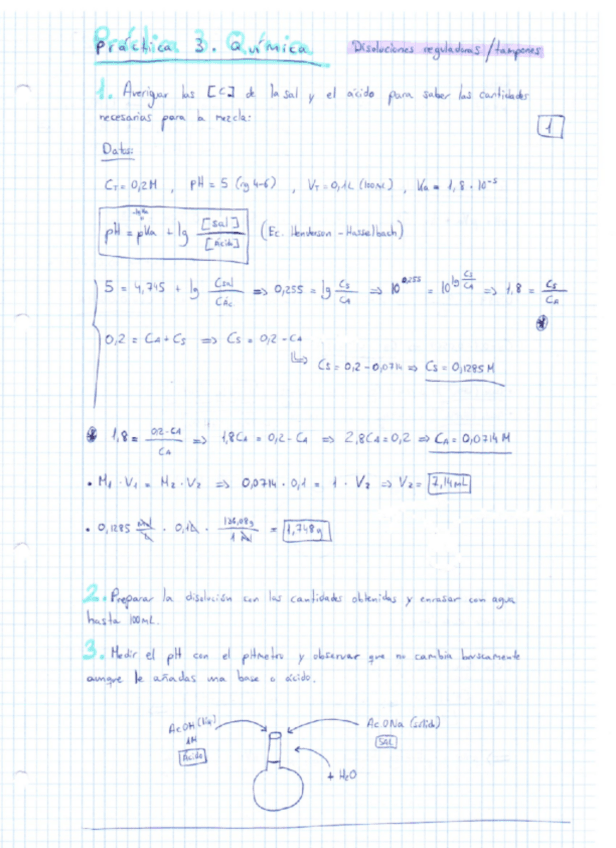 Práctica 3. Química
Disoluciones reguladoras / tampones
1. Averiguar las [C] de la sal y el ácido para saber las cantidades
necesarias para la mezcla:
1
Datos:
CT = 0,2M , pH = 5 (rg 4-6) , VT = 0,1L (100mL) , Ka = 1,8 · 10⁻⁵
-lg Ka
pH = pKa + lg [sal]/[ácido] (Ec. Henderson - Hasselbach)
5 = 4,745 + lg Csal/Các => 0,255 = lg Cs/CA => 10^0,255 = 10^lg Cs/CA => 1,8 = Cs/CA
*
0,2 = CA + Cs => Cs = 0,2 - CA
↳ Cs = 0,2 - 0,0714 => Cs = 0,1285 M
* 1,8 = 0,2-CA/CA => 1,8CA = 0,2 - CA => 2,8CA = 0,2 => CA = 0,0714 M
• M1 · V1 = M2 · V2 => 0,0714 · 0,1 = 1 · V2 => V2 = 7,14mL
• 0,1285 mol/L · 0,1L · 136,08g/1 mol = 1,748g
2. Preparar la disolución con las cantidades obtenidas y enrasar con agua
hasta 100mL.
3. Medir el pH con el pHmetro y observar que no cambia bruscamente
aunque le añadas una base o ácido.
AcOH (líq)
1M
Ácido
AcONa (sólido)
SAL
+ H2O